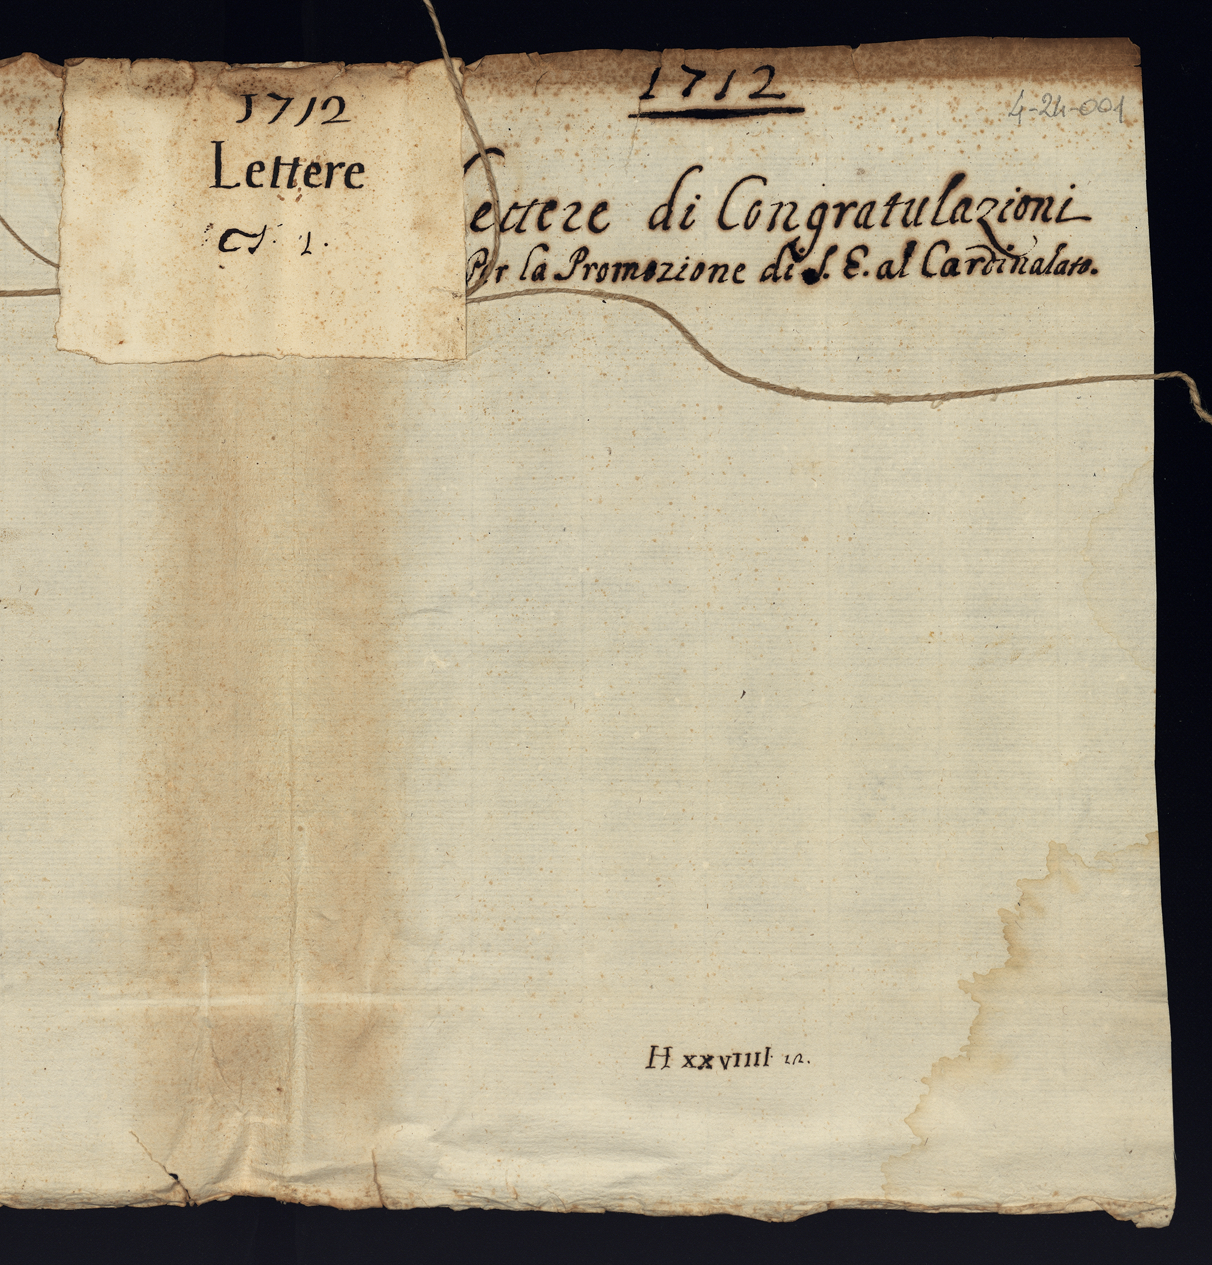 1712
Lettere
1712
4-24-001
Lettere di Congratulazioni
Per la Promozione di S. E. al Cardinalato.
H xxvıııı